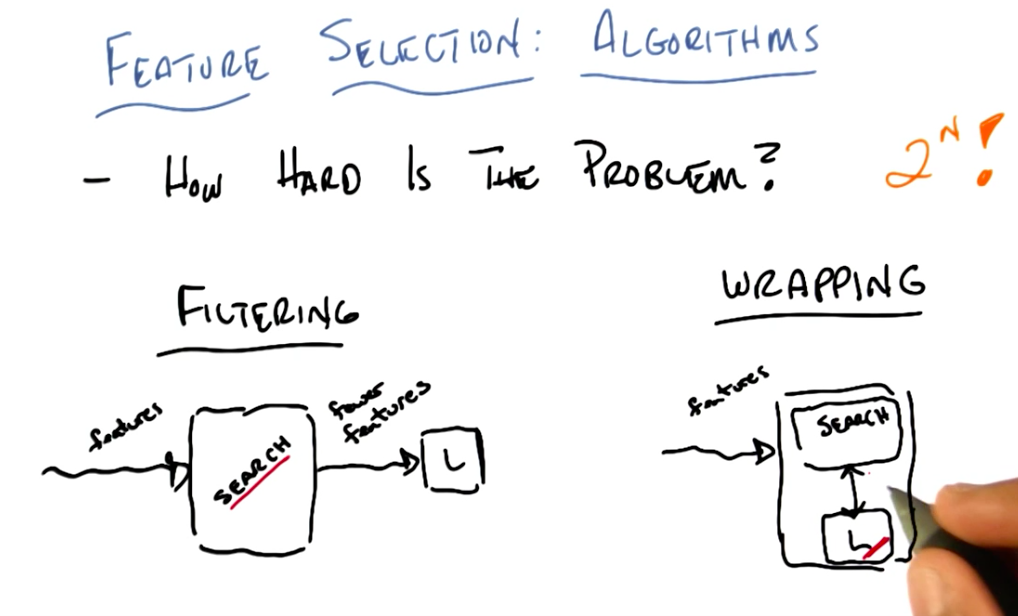 FEATURE SELECTION: ALGORITHMS
- HOW HARD IS THE PROBLEM? 2^N!
FILTERING
features
SEARCH
fewer
features
L
WRAPPING
features
SEARCH
L